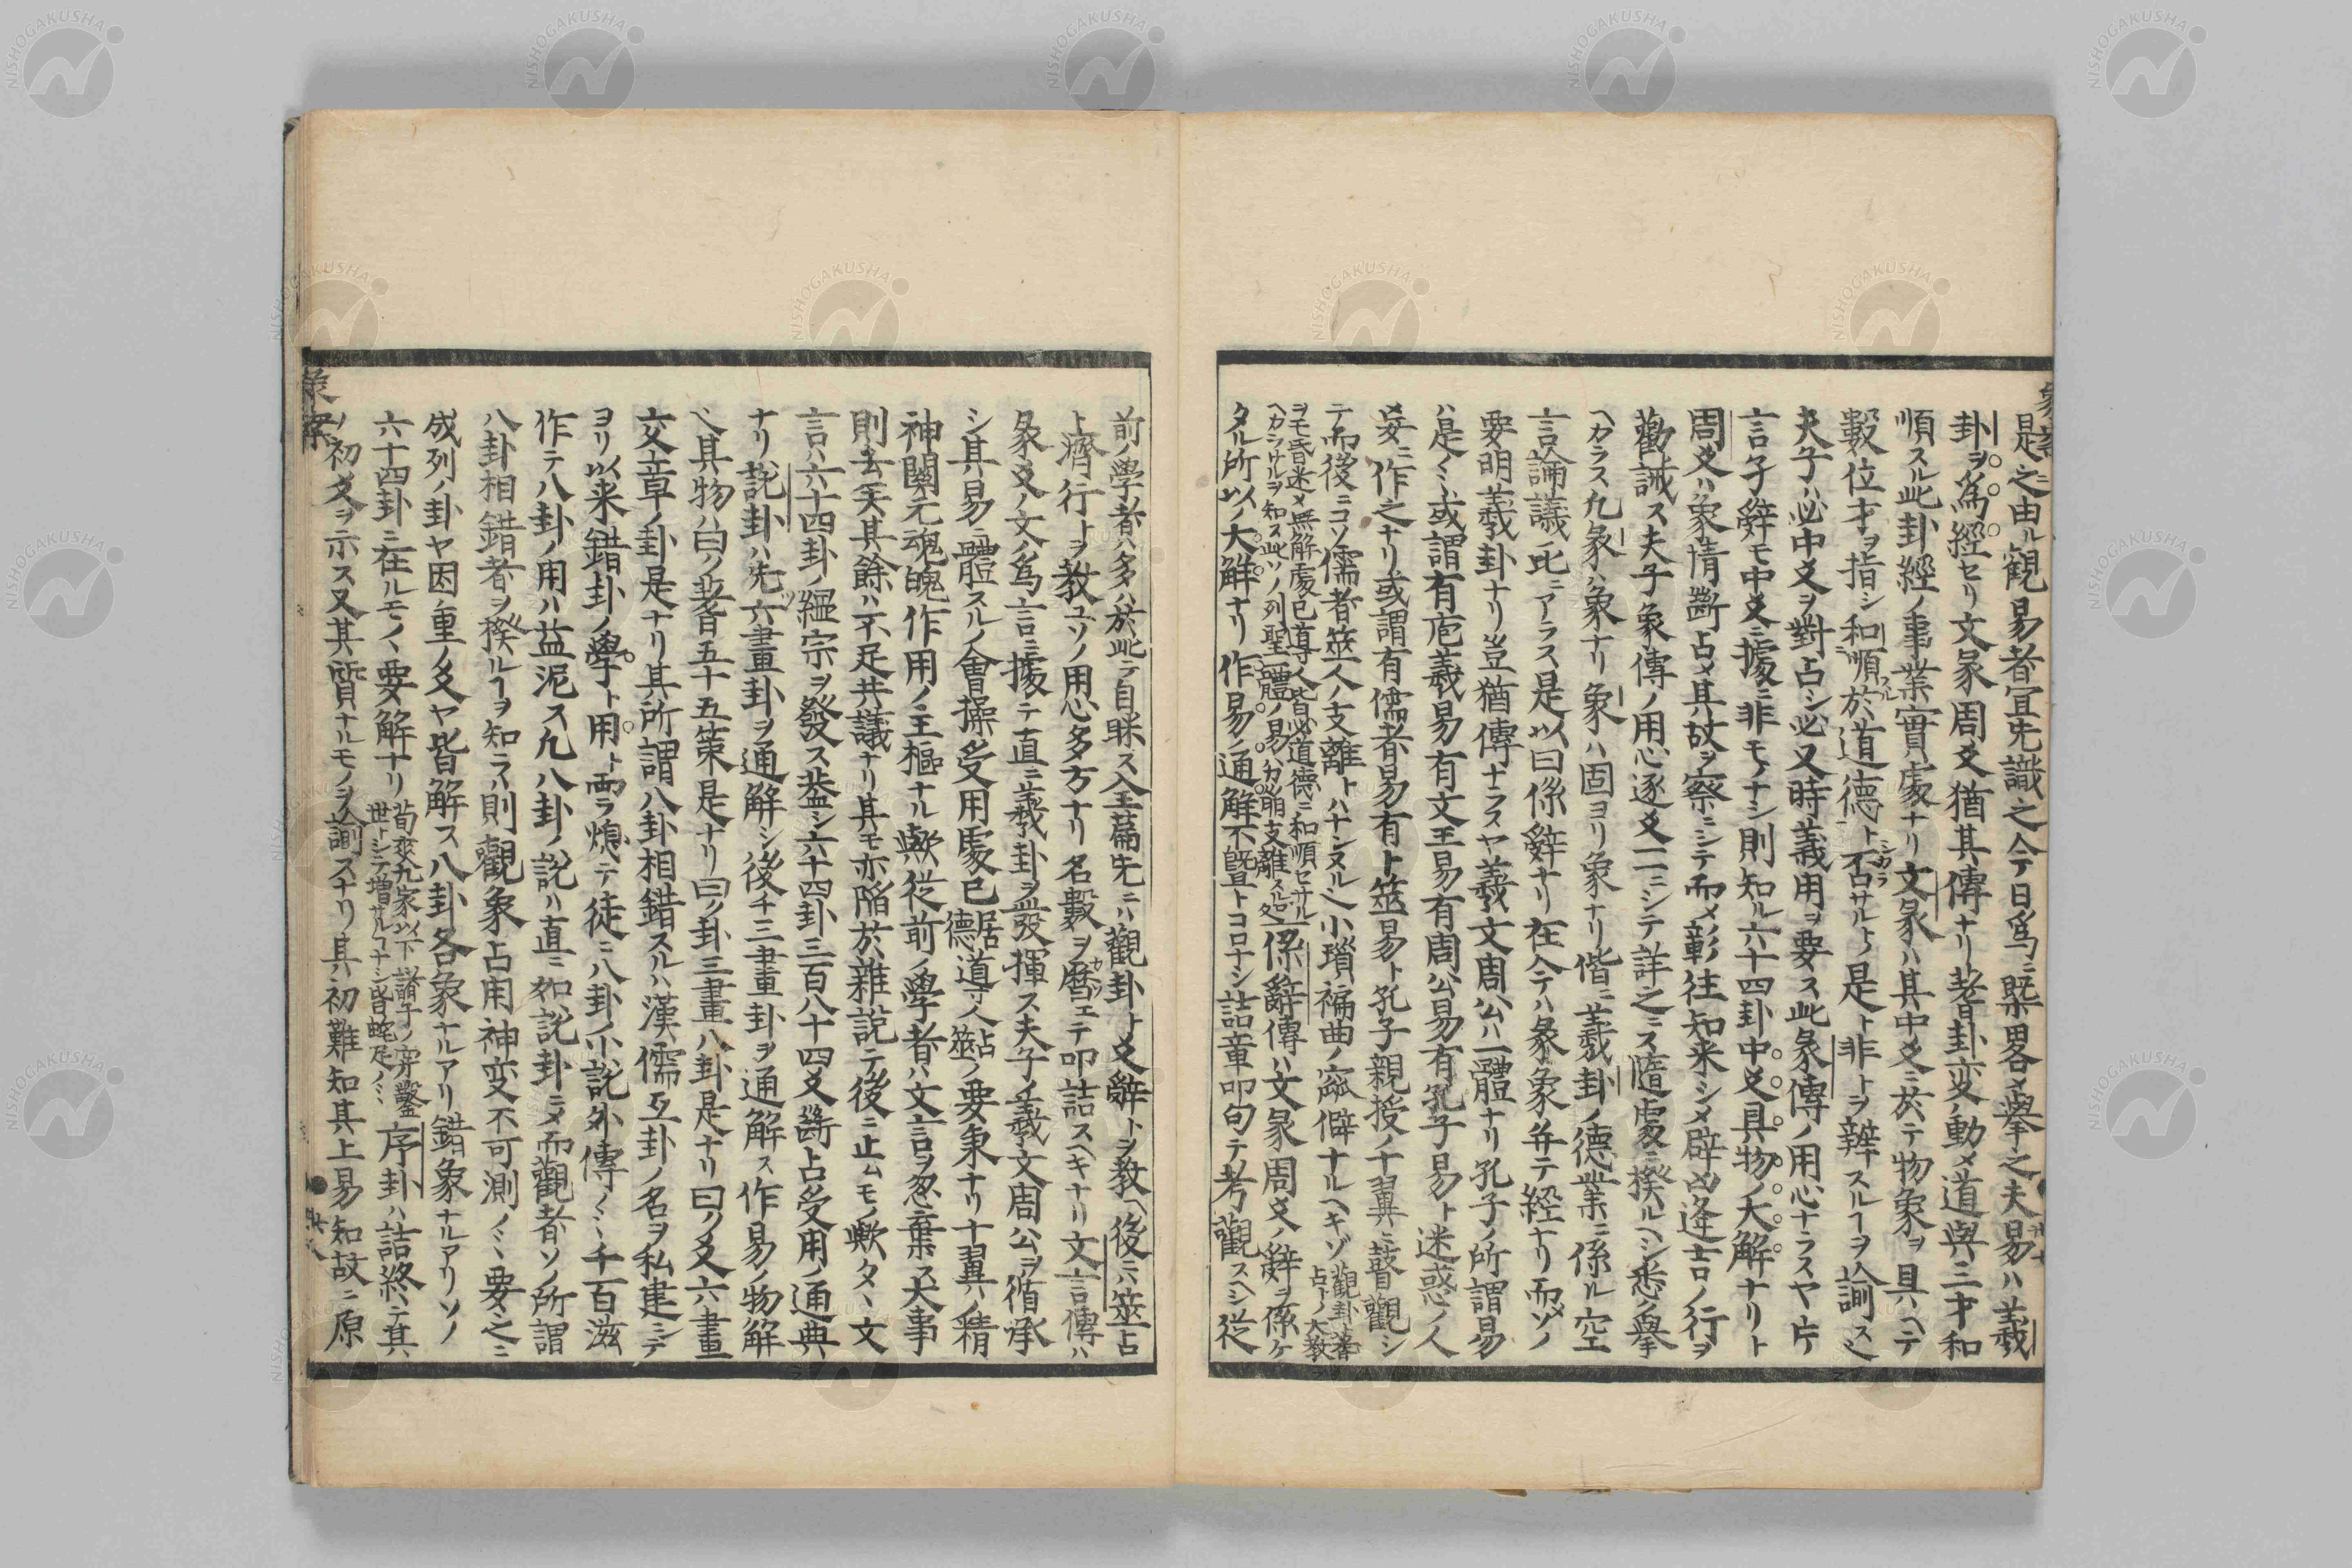 是之由ル觀易者宜先識之今テ日爲ニ槩畧メ擧之夫易ハ羲
卦ヲ爲經セリ文彖周爻猶其傳ナリ蓍卦変動メ道與三才和
順スル此卦經ノ事業實處ナリ文彖ハ其中爻ニ於テ物象ヲ具ヘテ
數位才ヲ指シ和順スル於道德ト否サルトノ是ト非トヲ辨スルヿヲ諭ス之
夫子ハ必中爻ヲ對占シ必又時義用ヲ要ス此彖傳ノ用心ナラスヤ片
言子辤モ中爻ニ據ニ非モノナシ則知ル六十四卦中爻具物ノ大解ナリト
周爻ハ象情斷占メ其故ヲ察ニシテ而メ彰往知来シメ辟凶逢吉ノ行ヲ
勸誡ス夫子象傳ノ用心逐爻一一ニシテ詳之ニス隨處ニ揆ルヘシ悉ク擧
ヘカラス凡彖ハ象ナリ象ハ固ヨリ象ナリ偕ニ羲卦ノ德業ニ係ル空
言論議ニアラス是以曰係辤ナリ在今テハ彖象并テ經ナリ而メソノ
要明羲卦ナリ豈猶傳ナラスヤ羲文周公ハ一體ナリ孔子ノ所謂易
ハ是ミ或謂有庖羲易有文王易有周公易有孔子易ト迷惑ノ人
妄ニ作之ナリ或謂有儒者易有ト筮易ト孔子親授ノ十翼ニ瞽觀シ
テ而後ニコソ儒者筮人ノ支離トハナンヌル之小瑣褊曲ノ寙僻ナルヘキゾ觀卦蓍占トノ大教
ヲモ昏迷メ無解處已導人皆必道德ニ和順セサル
ヘカラサルヲ知ス此ソノ列聖一體ノ易ハ分崩支離スル処係辭傳ハ文彖周爻ノ辤ヲ係ケ
タル所以ノ大解ナリ作易ノ通解不曁トコロナシ詰章叩句テ考觀スヘシ従
前ノ學者ハ多ハ於此テ自眯ス全篇先ニハ觀卦ト爻辤トヲ教ヘ後ニハ筮占
ト濟行トヲ教ユソノ用心多方ナリ名數ヲ暦エテ叩詰スヘキナリ文言傳ハ
彖爻ノ文ノ爲言ニ據テ直ニ羲卦ヲ益發揮ス夫子ノ羲文周公ヲ循承
シ其易ニ體スルノ會操受用處已居德道于人占筮ノ要秉ナリ十翼ノ精
神關元魂魄作用ノ主樞ナル歟従前ノ學者ハ文言ヲ忽棄ス大事
則去矣其餘ハ不足共議ナリ其モ亦陥於雜説テ後ニ止ムモノ歟夕丶文
言ハ六十四卦ノ綱宗ヲ發ス葢シ六十四卦三百八十四爻斷占受用ノ通典
ナリ説卦ハ先ツ六畫卦ヲ通解シ後チ三畫卦ヲ通解ス作易ノ物解
ベ其物ハ曰ノ蓍五十五策是ナリ曰ノ卦三畫八卦是ナリ曰ノ爻六畫
交章ノ卦是ナリ其所謂八卦相錯スルハ漢儒互卦ノ名ヲ私建シテ
ヨリ以来錯卦ノ學ト用ト兩ラ熄テ徒ニ八卦ノ小説外傳ミ千百滋
作テ八卦ノ用ハ益泥ス凡八卦ノ説ハ直ニ如説卦ニメ而觀者ソノ所謂
八卦相錯者ヲ揆ルヿヲ知ラハ則觀象占用神变不可測ノミ要之ニ
成列ノ卦ヤ因重ノ爻ヤ皆解ス八卦各象ナルアリ錯象ナルアリソノ
六十四卦ニ在ルモノヽ要解ナリ荀爽九家以下諸子ノ穿鑿世トシテ増サルコナシ昏蛇足ノミ序卦ハ詰終ハテ其
ノ初爻ヲ示ス又其貭ナルモノヲ諭スナリ其初難知其上易知故ニ原